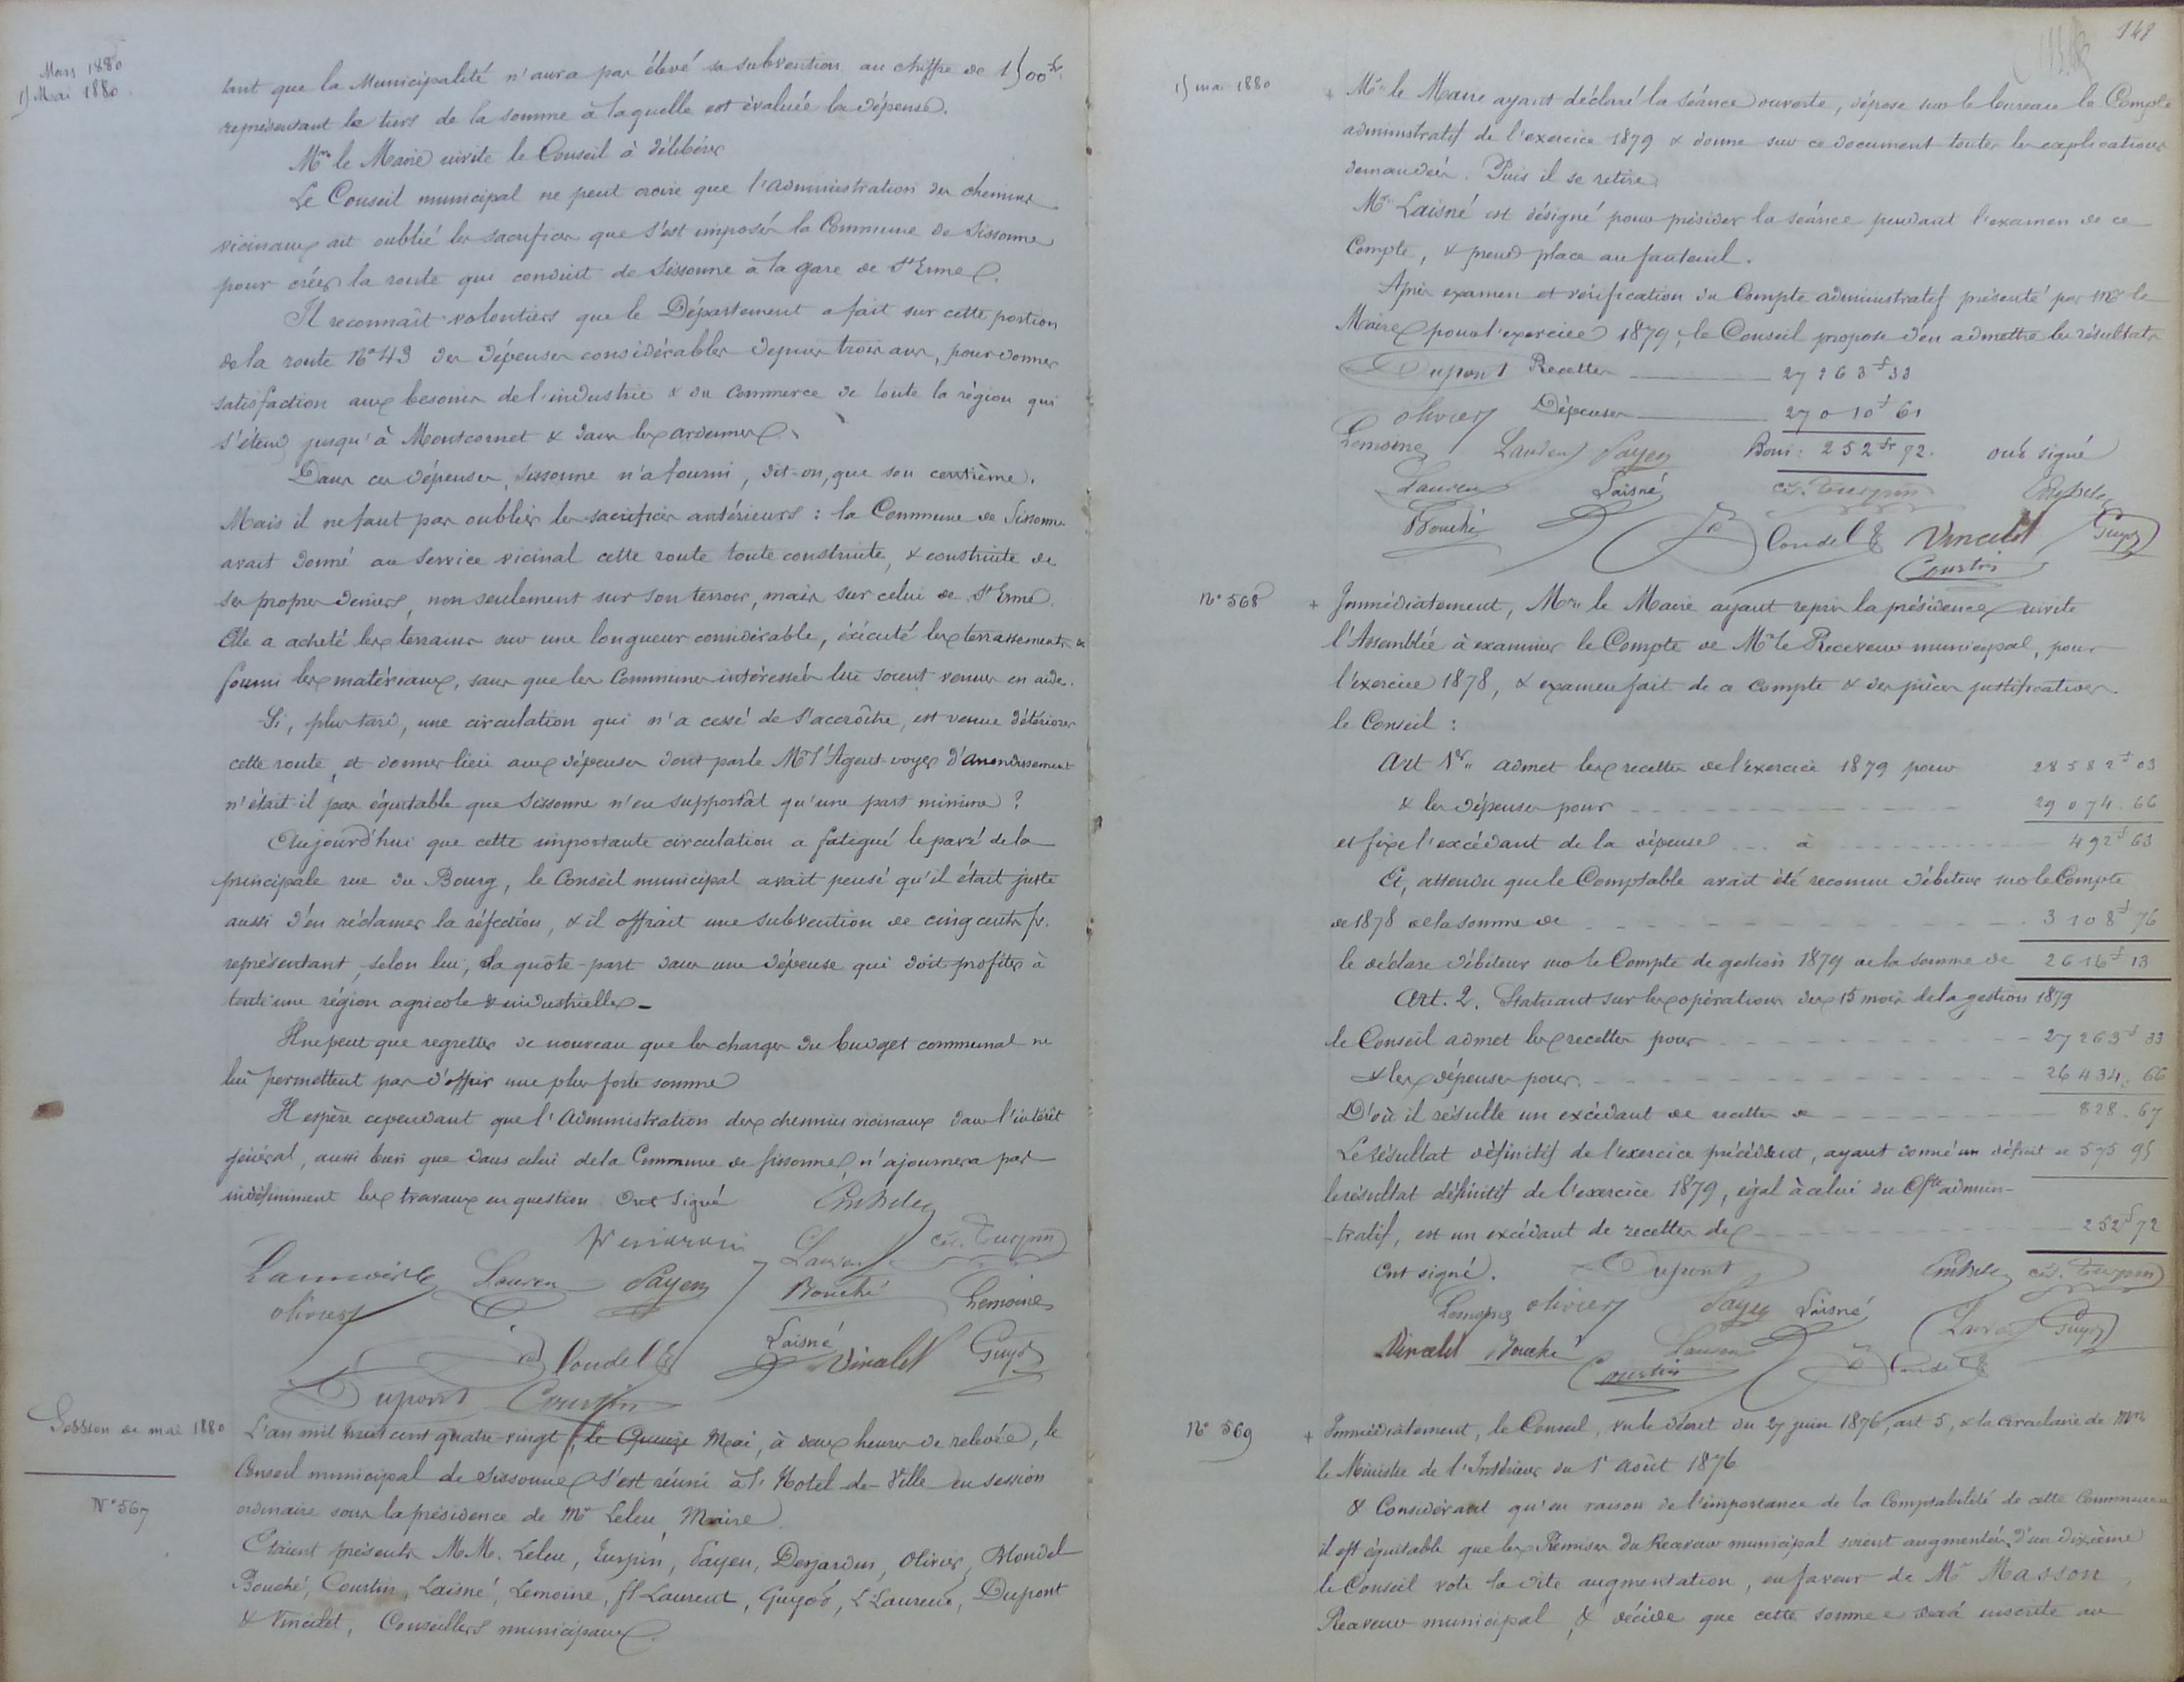 Mars 1880
15 Mai 1880.
tant que la Municipalité n'aura pas élevé sa subvention au chiffre de 1500 fr.
représentant le tiers de la somme à laquelle est évaluée la dépense.
Mr le Maire invite le Conseil à délibérer
Le Conseil municipal ne peut croire que l'Administration des chemins
vicinaux ait oublié les sacrifices que s'est imposés la Commune de Sissonne
pour créer la route qui conduit de Sissonne à la gare de St Erme.
Il reconnaît volontiers que le Département a fait sur cette portion
de la route No 43 des dépenses considérables depuis trois ans, pour donner
satisfaction aux besoins de l'industrie & du Commerce de toute la région qui
s'étend jusqu'à Montcornet & dans les Ardennes.
Dans ces dépenses, Sissonne n'a fourni, dit-on, que son centième.
Mais il ne faut pas oublier les sacrifices antérieurs : la Commune de Sissonne
avait donné au Service vicinal cette route toute construite, & construite de
ses propres deniers, non seulement sur son terroir, mais sur celui de St Erme.
Elle a acheté les terrains sur une longueur considérable, éxécuté les terrassements &
fourni les matériaux, sans que les Communes intéressées lui soient venues en aide.
Si, plus tard, une circulation qui n'a cessé de s'accroître, est venue détériorer
cette route, et donner lieu aux dépenses dont parle Mr l'Agent-voyer d'Arrondissement
n'était-il pas équitable que Sissonne n'en supportât qu'une part minime ?
Aujourd'hui que cette importante circulation a fatigué le pavé de la
principale rue du Bourg, le Conseil municipal avait pensé qu'il était juste
aussi d'en réclamer la réfection, & il offrait une subvention de cinq cents fr.
représentant, selon lui, sa quôte-part dans une dépense qui doit profiter à
toute une région agricole & industrielle.
Il ne peut que regretter de nouveau que les charges du budget communal ne
lui permettent pas d'offrir une plus forte somme
Il espère cependant que l'Administration des chemins vicinaux dans l'intérêt
général, aussi bien que dans celui de la Commune de Sissonne, n'ajournera pas
indéfiniment les travaux en question Ont signé
Turpin
Laurent Payen Bouché Lemoine
Olivier
Laisné Vincelet Guyot
Dupont Courtin
Session de mai 1880
L'an mil huit cent quatre-vingt, le Quinze Mai, à deux heures de relevée, le
Conseil municipal de Sissonne s'est réuni à l'Hotel-de-Ville en session
No 567
ordinaire sous la présidence de Mr Leleu, Maire.
Etaient présents MM. Leleu, Turpin, Payen, Desjardins, Olivier, Blondel
Bouché, Courtin, Laisné, Lemoine, Laurent, Guyot, L. Laurent, Dupont
& Vincelet, Conseillers municipaux.
148
15 mai 1880
+ Mr le Maire ayant déclaré la séance ouverte, dépose sur le bureau le Compte
administratif de l'exercice 1879 & donne sur ce document toutes les explications
demandées. Puis il se retire.
Mr Laisné est désigné pour présider la séance pendant l'examen de ce
Compte, & prend place au fauteuil.
Après examen et vérification du Compte administratif présenté par Mr le
Maire pour l'exercice 1879, le Conseil propose d'en admettre les résultats
Dupont Recettes 27263f 33
Olivier Dépenses 27010f 61
Lemoine Laurent Payen Boni : 252fr 72. ont signé
Laurent Laisné Turpin
Bouché Vincelet Guyot
Courtin
No 568
+ Immédiatement, Mr le Maire ayant repris la présidence invite
l'Assemblée à examiner le Compte de Mr le Receveur municipal, pour
l'exercice 1878, & examen fait de ce compte & des pièces justificatives
le Conseil :
Art 1er admet les recettes de l'exercice 1879 pour 28582f 03
& les dépenses pour 29074.66
et fixe l'excédant de la dépense à 492f 63
Et, attendu que le Comptable avait été reconnu débiteur sur le Compte
de 1878 de la somme de 3108f 76
le déclare débiteur sur le Compte de gestion 1879 de la somme de 2616f 13
Art. 2. Statuant sur les opérations des 15 mois de la gestion 1879
le Conseil admet les recettes pour 27263f 33
& les dépenses pour 26434.66
D'où il résulte un excédant de recettes de 828.67
Le résultat définitif de l'exercice précédent, ayant donné un déficit de 575 95
le résultat définitif de l'exercice 1879, égal à celui du Cpte adminis-
-tratif, est un excédant de recettes de 252f 72
Ont signé. Dupont Turpin
Lemoine Olivier Payen Laisné
Vincelet Bouché Laurent Guyot
Courtin
No 569
+ Immédiatement, le Conseil, vu le décret du 27 juin 1876, art 5, & la circulaire de Mr
le Ministre de l'Intérieur du 1r Août 1876
& Considérant qu'en raison de l'importance de la Comptabilité de cette Commune
il est équitable que les Remises du Receveur municipal soient augmentées d'un dixième
le Conseil vote la dite augmentation, en faveur de Mr Masson,
Receveur municipal, & décide que cette somme sera inscrite au